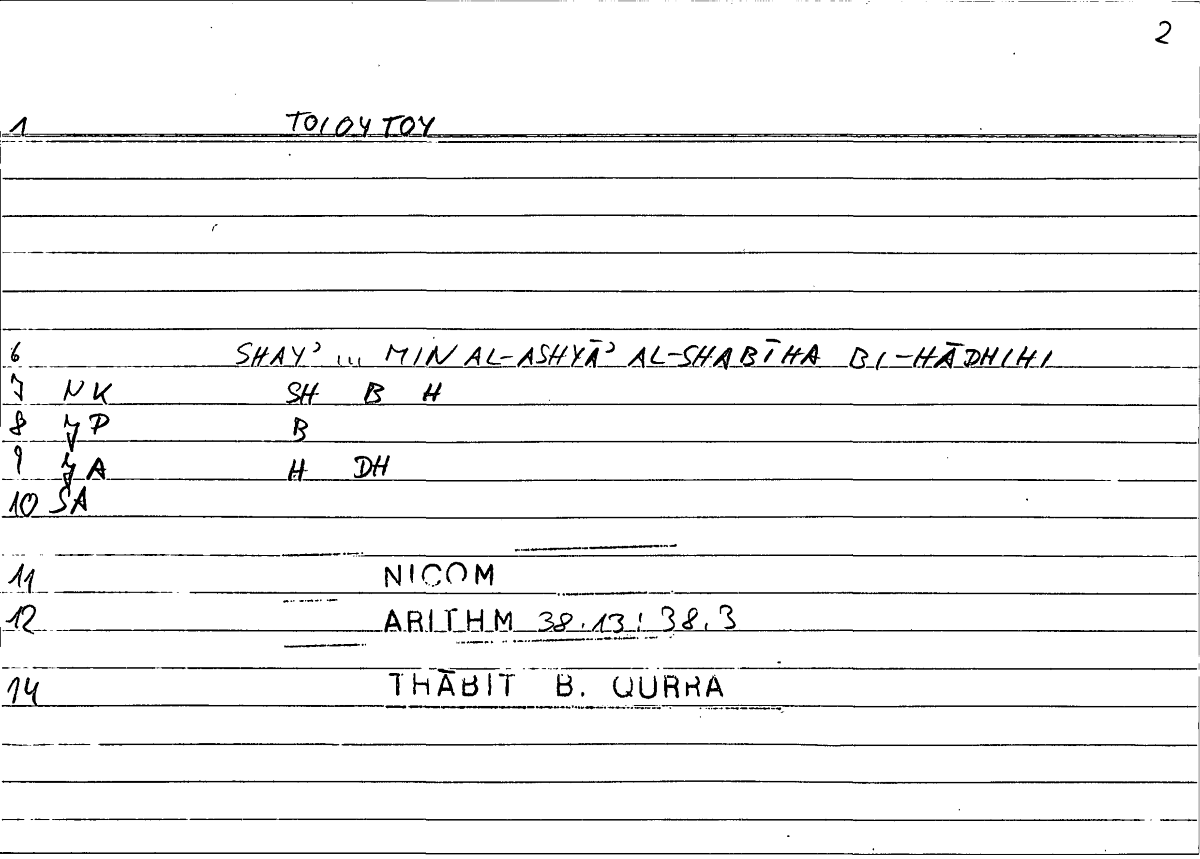 2
1 ΤΟΙΟΥΤΟΥ
6 SHAYʾ ... MIN AL-ASHYĀʾ AL-SHABĪHA BI-HĀDHIHI
7 NK SH B H
8 P B
9 A H DH
10 SA
11 NICOM
12 ARITHM 38.13: 38.3
14 THĀBIT B. QURRA